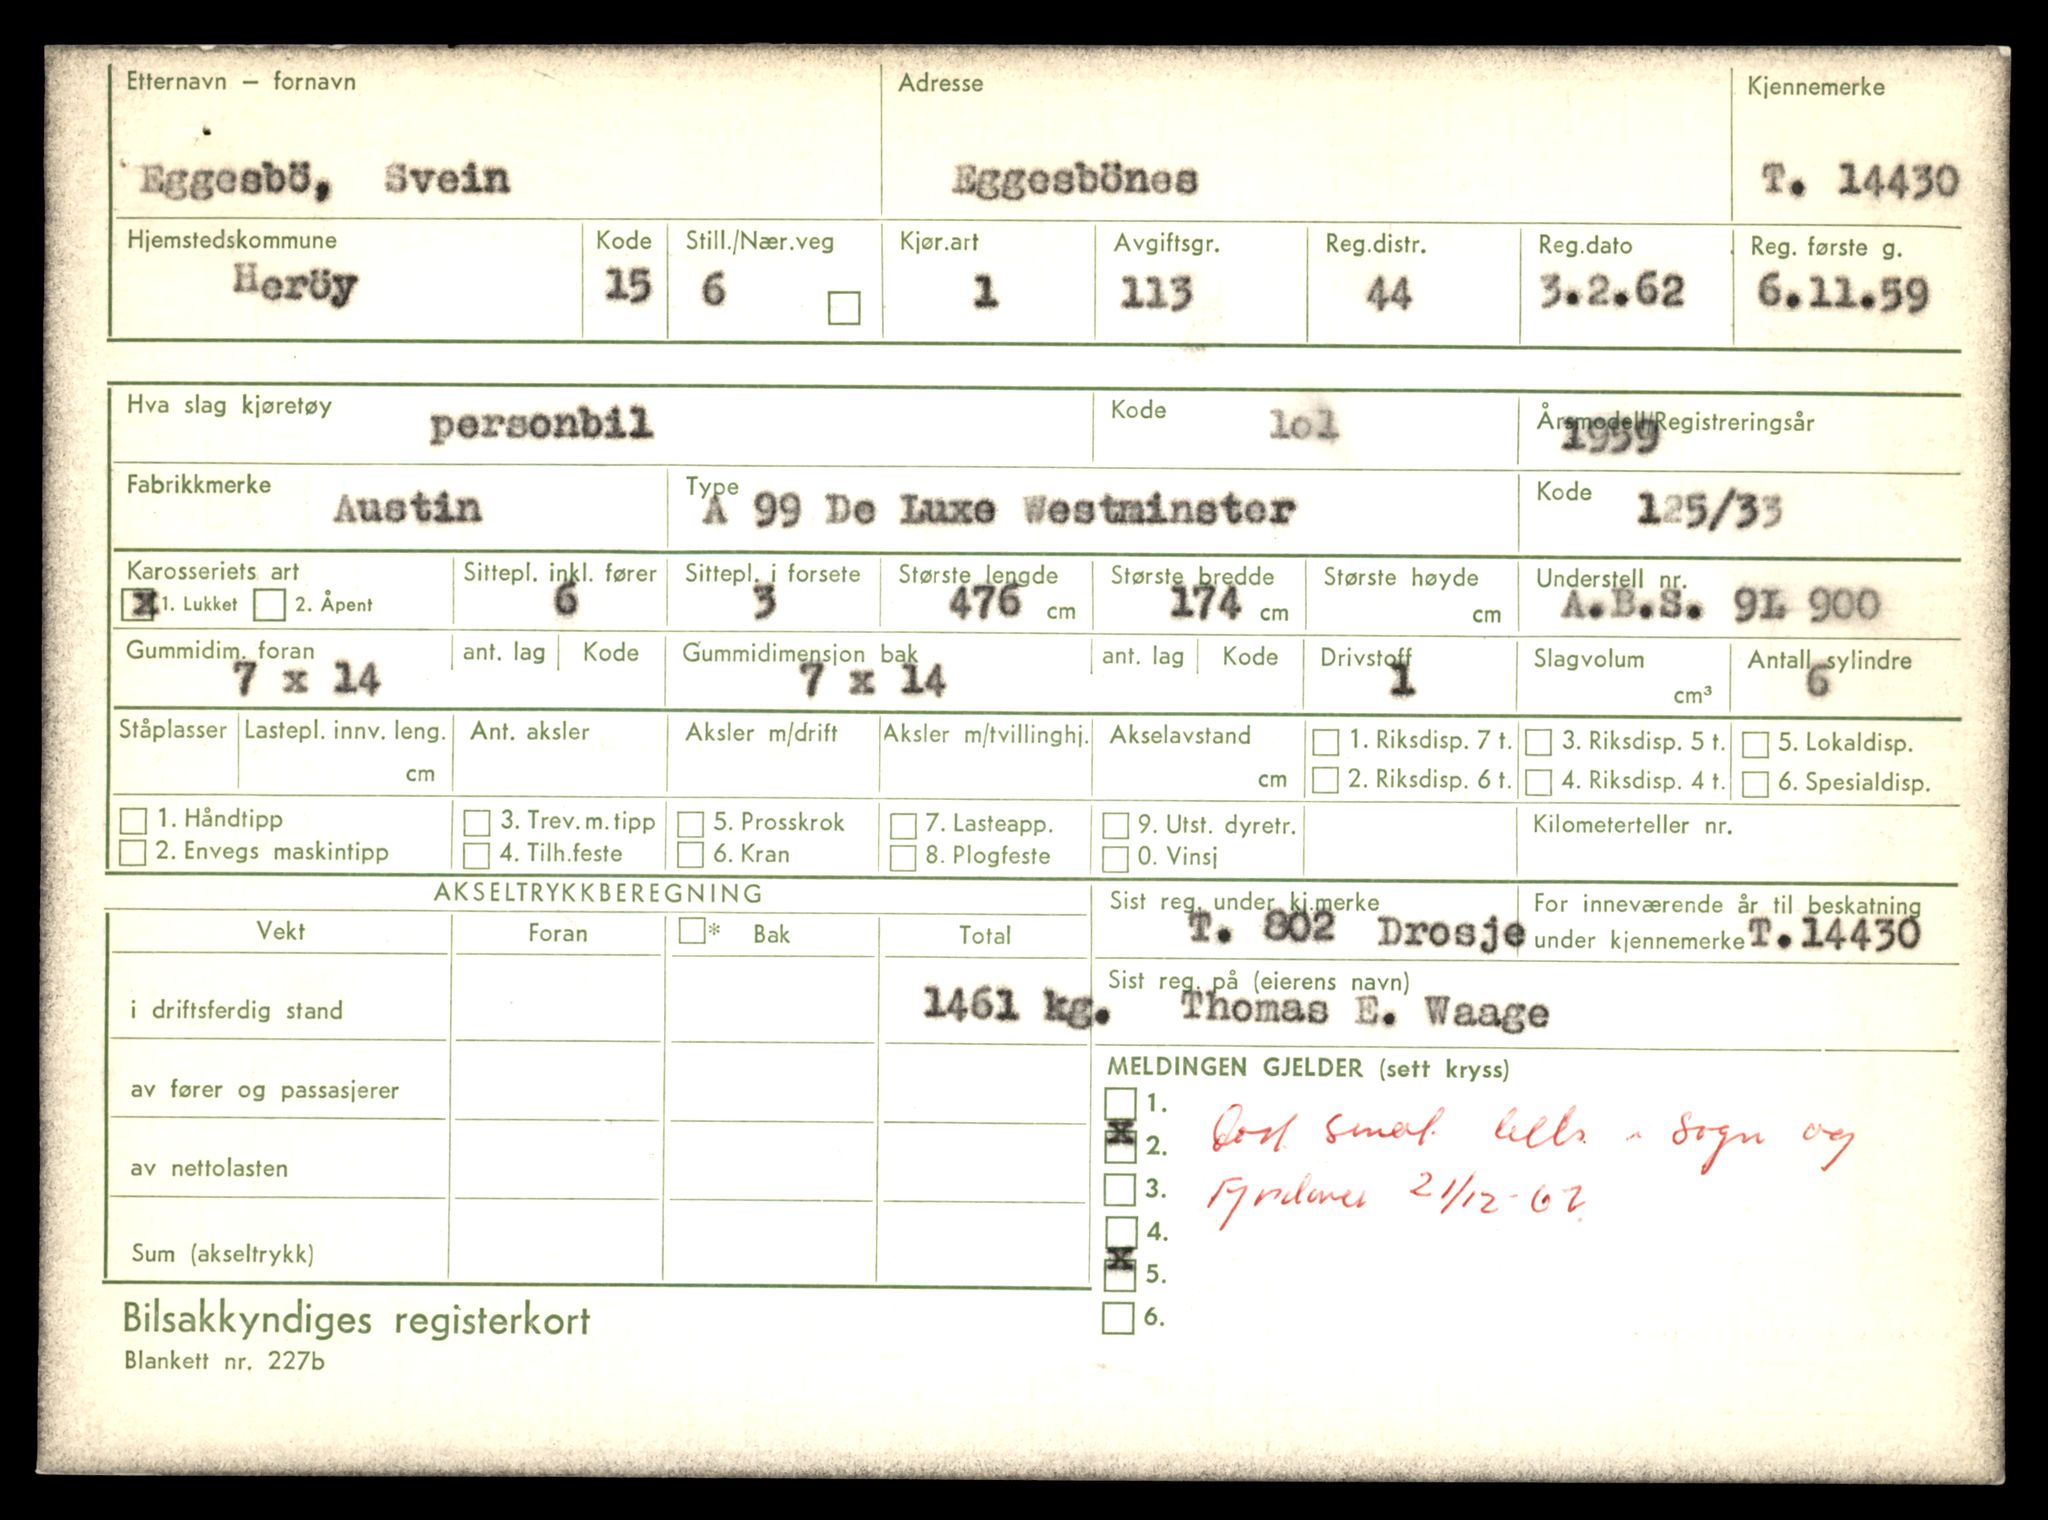 Etternavn — fornavn Adresse Kjennemerke
Eggesbö, Svein Eggesbönes T. 14430
Hjemstedskommune Kode Still./Nær.veg Kjør.art Avgiftsgr. Reg.distr. Reg.dato Reg. første g.
Heröy 15 6 1 113 44 3.2.62 6.11.59
Hva slag kjøretøy personbil Kode lol Årsmodell/Registreringsår 1959
Fabrikkmerke Austin Type A 99 De Luxe Westminster Kode 125/33
Karosseriets art Sittepl. inkl. fører Sittepl. i forsete Største lengde Største bredde Største høyde Understell nr.
x 1. Lukket 2. Åpent 6 3 476 cm 174 cm cm A.B.S. 9L 900
Gummidim. foran ant. lag Kode Gummidimensjon bak ant. lag Kode Drivstoff Slagvolum Antall sylindre
7 x 14 7 x 14 1 cm³ 6
Ståplasser Lastepl. innv. leng. Ant. aksler Aksler m/drift Aksler m/tvillinghj. Akselavstand 1. Riksdisp. 7 t. 3. Riksdisp. 5 t. 5. Lokaldisp.
cm cm 2. Riksdisp. 6 t. 4. Riksdisp. 4 t. 6. Spesialdisp.
1. Håndtipp 3. Trev. m. tipp 5. Prosskrok 7. Lasteapp. 9. Utst. dyretr. Kilometerteller nr.
2. Envegs maskintipp 4. Tilh.feste 6. Kran 8. Plogfeste 0. Vinsj
AKSELTRYKKBEREGNING Sist reg. under kj.merke For inneværende år til beskatning
Vekt Foran * Bak Total T. 802 Drosje under kjennemerke T.14430
Sist reg. på (eierens navn)
i driftsferdig stand 1461 kg. Thomas E. Waage
MELDINGEN GJELDER (sett kryss)
av fører og passasjerer 1.
x 2. Sogn og
av nettolasten 3. 21/12-62
4.
Sum (akseltrykk) x 5.
Bilsakkyndiges registerkort 6.
Blankett nr. 227b